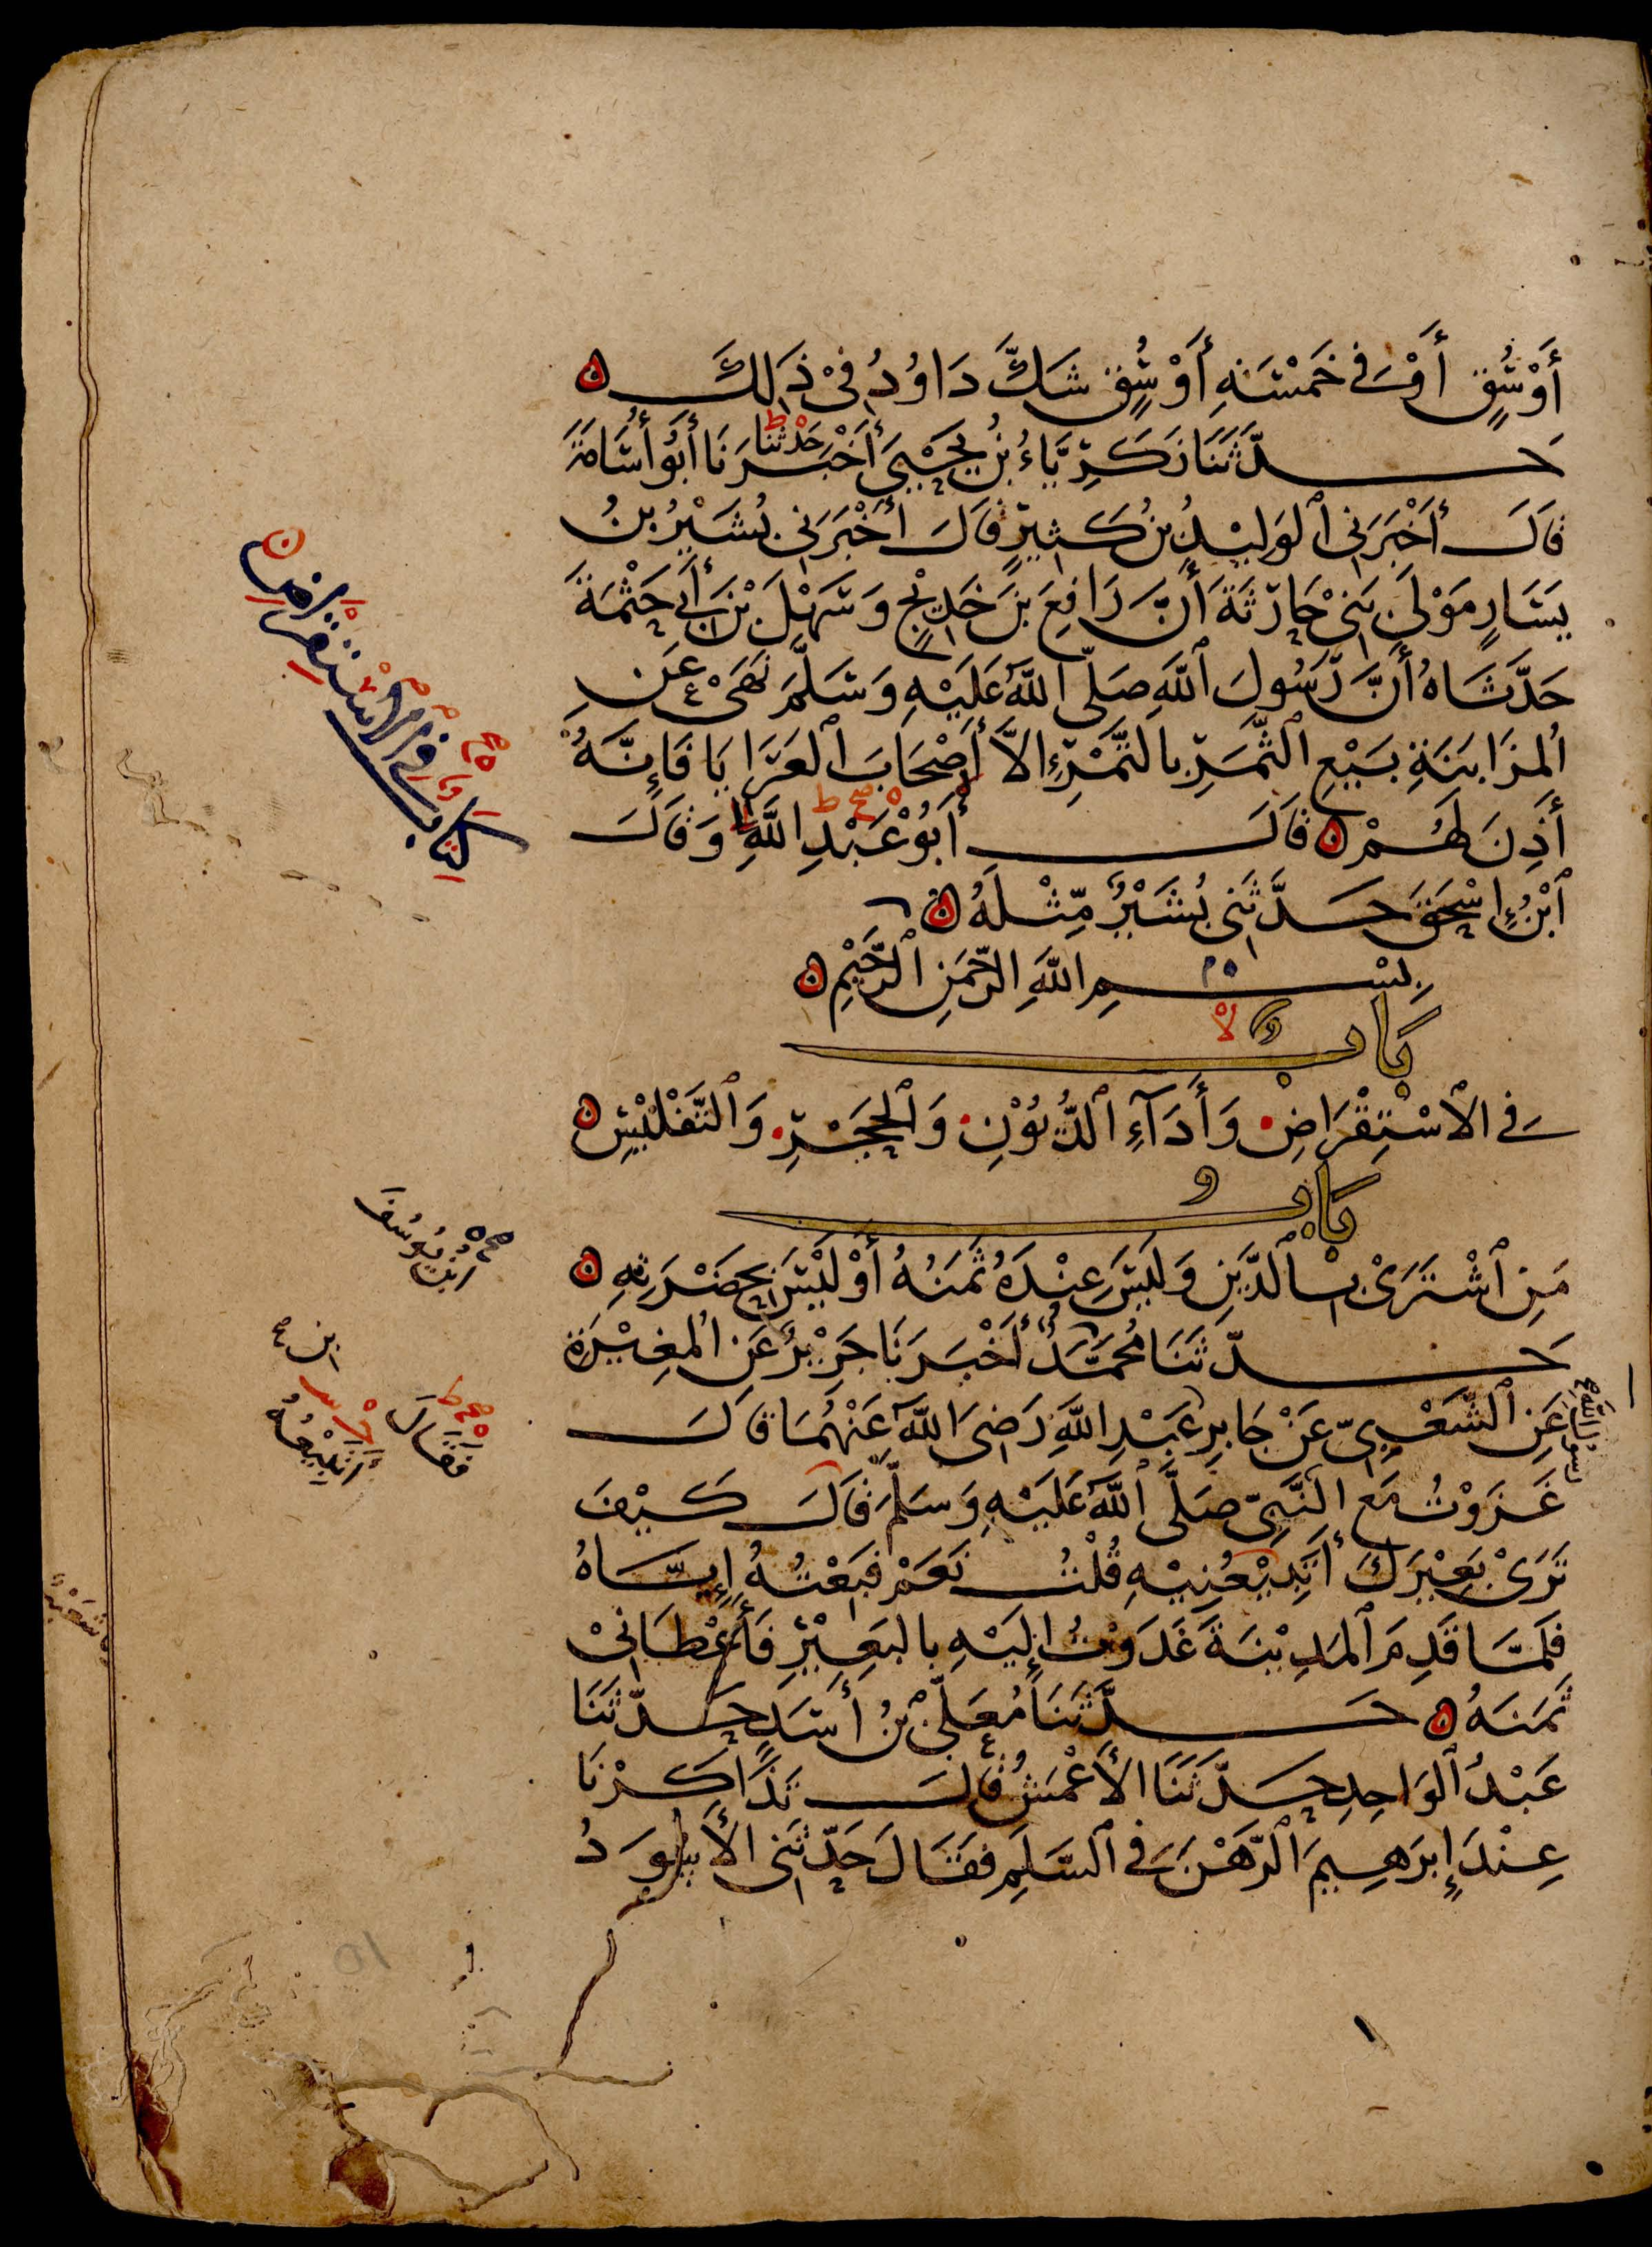 أَوْسُقٍ أَوْ فِي خَمْسَةِ أَوْسُقٍ شَكَّ دَاوُدُ فِي ذَلِكَ
حَدَّثَنَا زَكَرِيَّاءُ بْنُ يَحْيَى أَخْبَرَنَا أَبُو أُسَامَةَ
حَدَّثَنَا
قَالَ أَخْبَرَنِي الْوَلِيدُ بْنُ كَثِيرٍ قَالَ أَخْبَرَنِي بُشَيْرُ بْنُ
يَسَارٍ مَوْلَى بَنِي حَارِثَةَ أَنَّ رَافِعَ بْنَ خَدِيجٍ وَسَهْلَ بْنَ أَبِي حَثْمَةَ
حَدَّثَاهُ أَنَّ رَسُولَ اللهِ صَلَّى اللهُ عَلَيْهِ وَسَلَّمَ نَهَى عَنِ
الْمُزَابَنَةِ بَيْعِ الثَّمَرِ بِالتَّمْرِ إِلَّا أَصْحَابَ الْعَرَايَا فَإِنَّهُ
أَذِنَ لَهُمْ قَالَ أَبُو عَبْدِ اللهِ وَقَالَ
ابْنُ إِسْحَقَ حَدَّثَنِي بُشَيْرٌ مِثْلَهُ
بِسْمِ اللهِ الرَّحْمَنِ الرَّحِيمِ
بَابٌ
فِي الِاسْتِقْرَاضِ وَأَدَاءِ الدُّيُونِ وَالْحَجْرِ وَالتَّفْلِيسِ
بَابُ
مَنِ اشْتَرَى بِالدَّيْنِ وَلَيْسَ عِنْدَهُ ثَمَنُهُ أَوْ لَيْسَ بِحَضْرَتِهِ
حَدَّثَنَا مُحَمَّدٌ أَخْبَرَنَا جَرِيرٌ عَنِ الْمُغِيرَةِ
عَنِ الشَّعْبِيِّ عَنْ جَابِرِ عَبْدِ اللهِ رَضِيَ اللهُ عَنْهُمَا قَالَ
غَزَوْتُ مَعَ النَّبِيِّ صَلَّى اللهُ عَلَيْهِ وَسَلَّمَ قَالَ كَيْفَ
تَرَى بَعِيرَكَ أَتَبِيعُنِيهِ قُلْتُ نَعَمْ فَبِعْتُهُ إِيَّاهُ
فَلَمَّا قَدِمَ الْمَدِينَةَ غَدَوْتُ إِلَيْهِ بِالْبَعِيرِ فَأَعْطَانِي
ثَمَنَهُ حَدَّثَنَا مُعَلَّى بْنُ أَسَدٍ حَدَّثَنَا
عَبْدُ الْوَاحِدِ حَدَّثَنَا الْأَعْمَشُ قَالَ تَذَاكَرْنَا
عِنْدَ إِبْرَهِيمَ الرَّهْنَ فِي السَّلَمِ فَقَالَ حَدَّثَنِي الْأَسْوَدُ
كتاب في الاستقراض
ابْنُ يُوسُفَ
ابن
فَقَالَ
أَتَبِيعُهُ
رسول الله